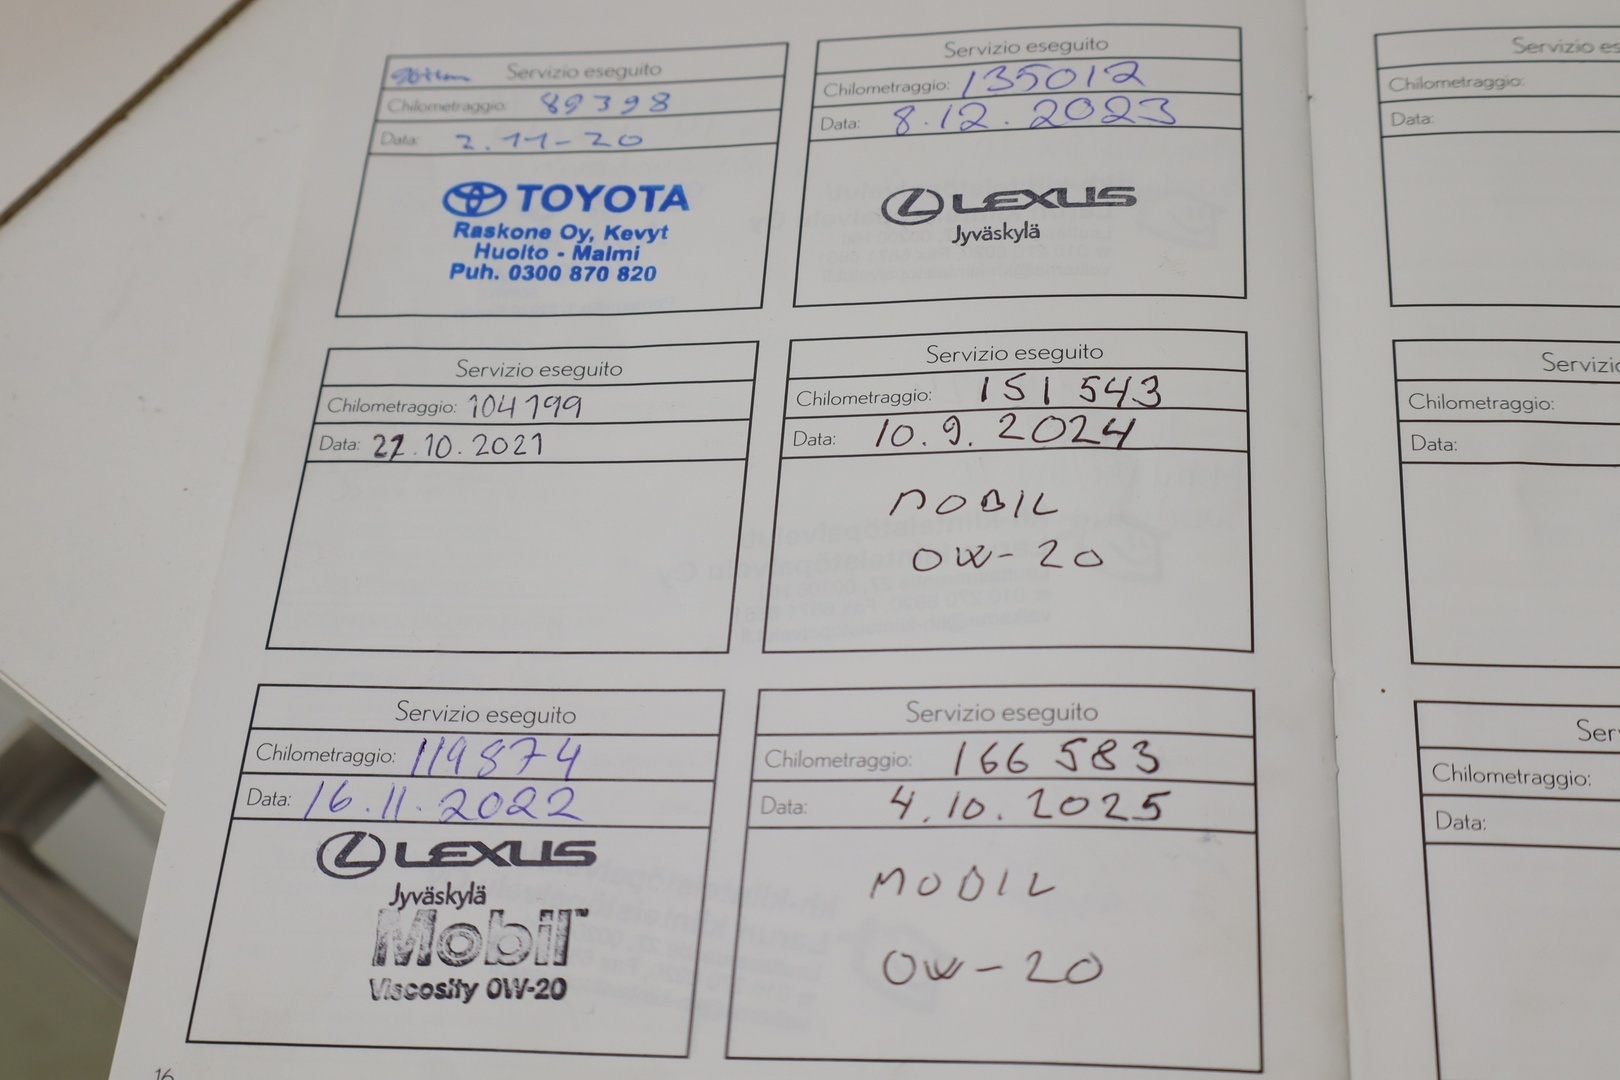 Servizio eseguito
Chilometraggio: 89398
Data: 2.11-20
TOYOTA
Raskone Oy, Kevyt
Huolto - Malmi
Puh. 0300 870 820
Servizio eseguito
Chilometraggio: 104199
Data: 22.10.2021
Servizio eseguito
Chilometraggio: 119874
Data: 16.11.2022
LEXUS
Jyväskylä
Mobil™
Viscosity 0W-20
16
Servizio eseguito
Chilometraggio: 135012
Data: 8.12.2023
LEXUS
Jyväskylä
Servizio eseguito
Chilometraggio: 151 543
Data: 10.9.2024
MOBIL
0W-20
Servizio eseguito
Chilometraggio: 166 583
Data: 4.10.2025
MOBIL
0W-20
Servizio es
Chilometraggio:
Data:
Servizio
Chilometraggio:
Data:
Ser
Chilometraggio:
Data: